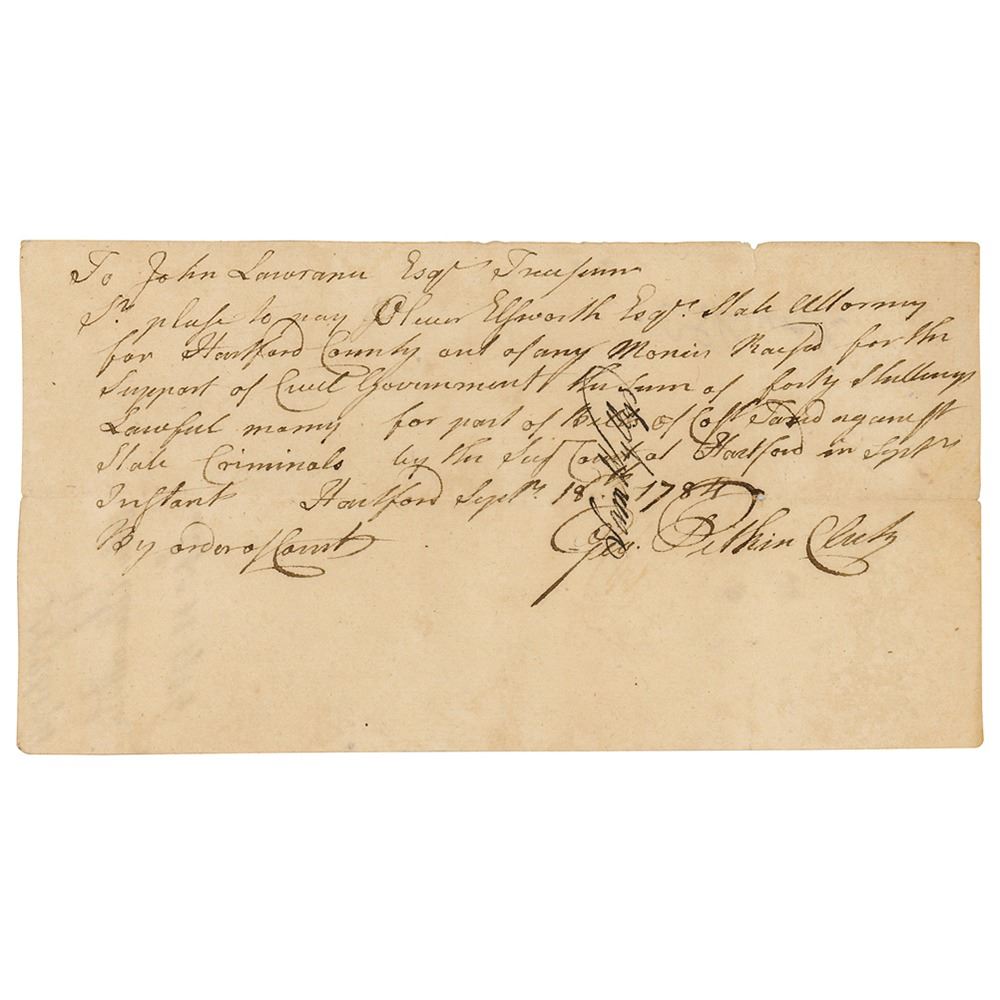 To John Lawrance Esqr Treasurer
Sr. please to pay Oliver Elsworth Esqr. State Attorney
for Hartford County out of any Monies Raised for the
Support of Civil Government the Sum of forty Shillings
Lawful money for part of Bills of Cost Taxed against
State Criminals by the Supr Court at Hartford in Septr
Instant Hartford Septr 18 1784
By order of Court Geo. Pitkin Clerk